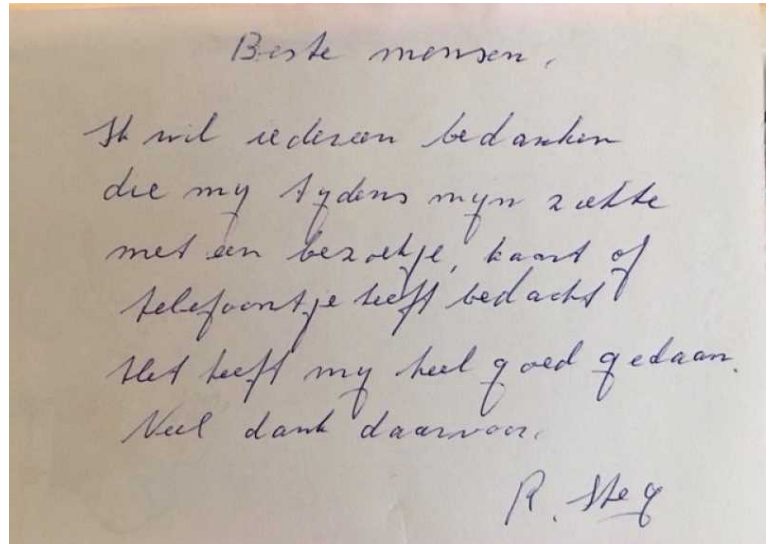 Beste mensen,
Ik wil iedereen bedanken
die mij tijdens mijn ziekte
met een bezoekje, kaart of
telefoontje heeft bedacht
Het heeft mij heel goed gedaan.
Veel dank daarvoor.
R. Steg